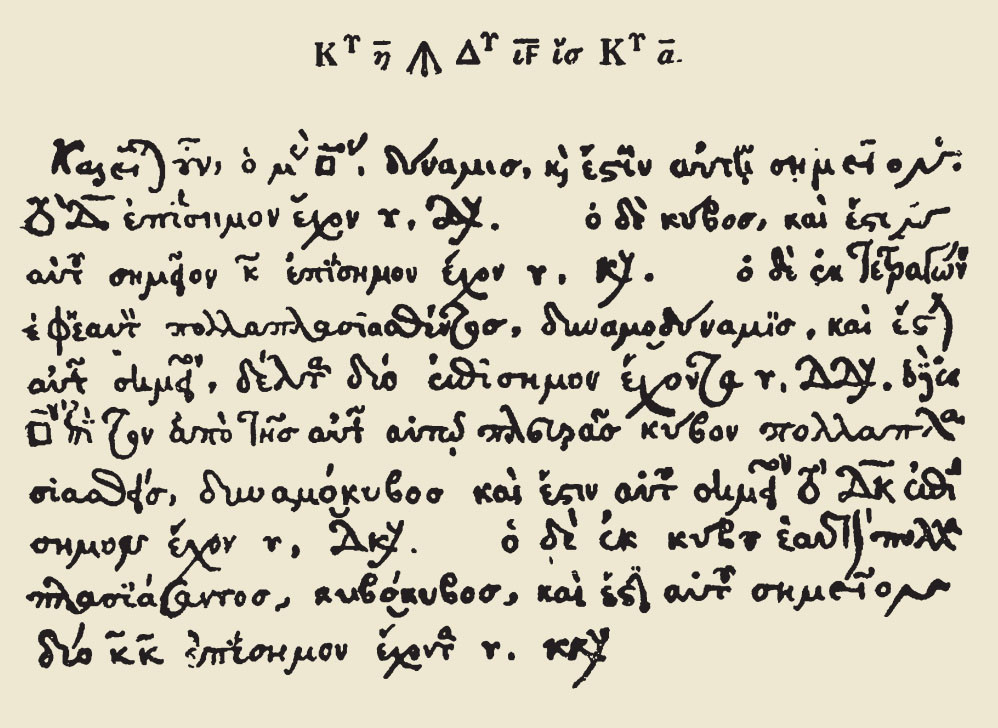 Κ^Υ η̄ ⩚ Δ^Υ ιϜ ἴσ Κ^Υ ᾱ.
Καλεῖται οὖν, ὁ μὲν □ος, δύναμισ, καὶ ἔστιν αὐτῆς σημεῖον
τὸ Δ̄ ἐπίσημον ἔχον υ, Δ^Υ. ὁ δὲ κύβοσ, καὶ ἔστιν
αὐτοῦ σημεῖον κ̄ ἐπίσημον ἔχον υ, Κ^Υ. ὁ δὲ ἐκ τετραγώνου
ἐφ' ἑαυτὸν πολλαπλασιασθέντοσ, δυναμοδύναμισ, καὶ ἔστιν
αὐτοῦ σημεῖον, δέλτα δύο ἐπίσημον ἔχοντα υ, ΔΔ^Υ. ὁ δὲ ἐκ
□ου τὸν ἀπὸ τῆσ αὐτῆς αὐτῷ πλευρᾶσ κύβον πολλαπλα
σιασθέντοσ, δυναμόκυβοσ καὶ ἔστιν αὐτοῦ σημεῖον τὸ ΔΚ ἐπί
σημον ἔχον υ, ΔΚ^Υ. ὁ δὲ ἐκ κύβου ἑαυτὸν πολλα
πλασιάσαντοσ, κυβόκυβοσ, καὶ ἔστιν αὐτοῦ σημεῖον
δύο κ̄κ̄ ἐπίσημον ἔχοντα υ. ΚΚ^Υ